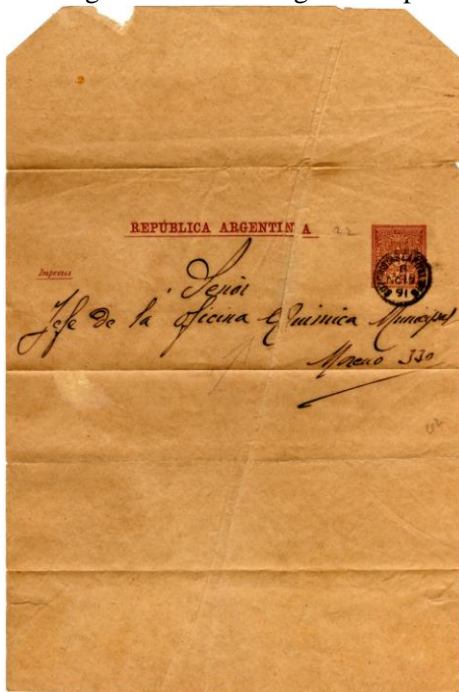 REPÚBLICA ARGENTINA
22
Impresos
Señor
Jefe de la Oficina Quimica Municipal
Moreno 330